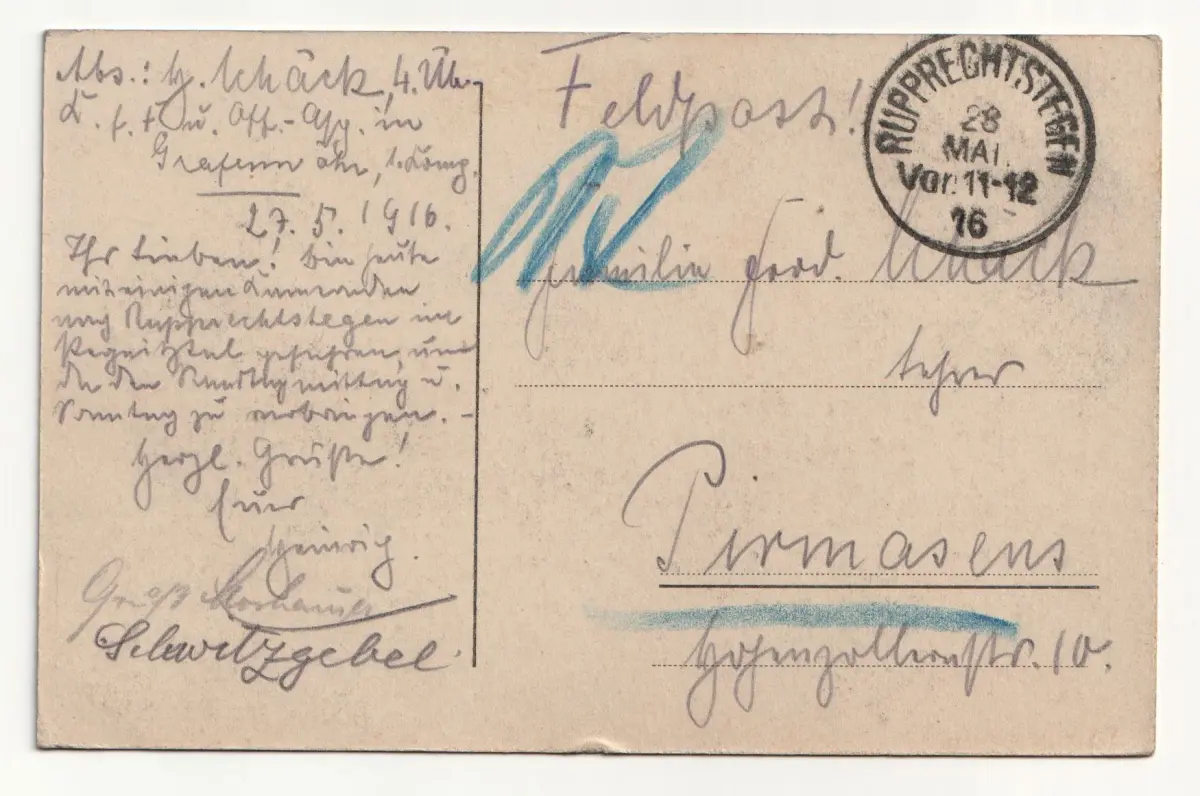 Abs.: H. Schäck, 4. Üb.-
K. f. F. u. Off.-Asp. in
Grafenwöhr, 1. Komp.
27. 5. 1916.
Ihr Lieben! Bin heute
mit einigen Kameraden
nach Rupprechtstegen im
Pegnitztal gefahren, um
da den Samstagmittag u.
Sonntag zu verbringen. -
Herzl. Grüße!
Euer
Heinrich.
Gruß
Schwitzgebel.
Feldpost!
RUPPRECHTSTEGEN
28
MAI.
Vor. 11-12
16
Familie Ferd. Schäck
Lehrer
Pirmasens
Hohenzollernstr. 10.